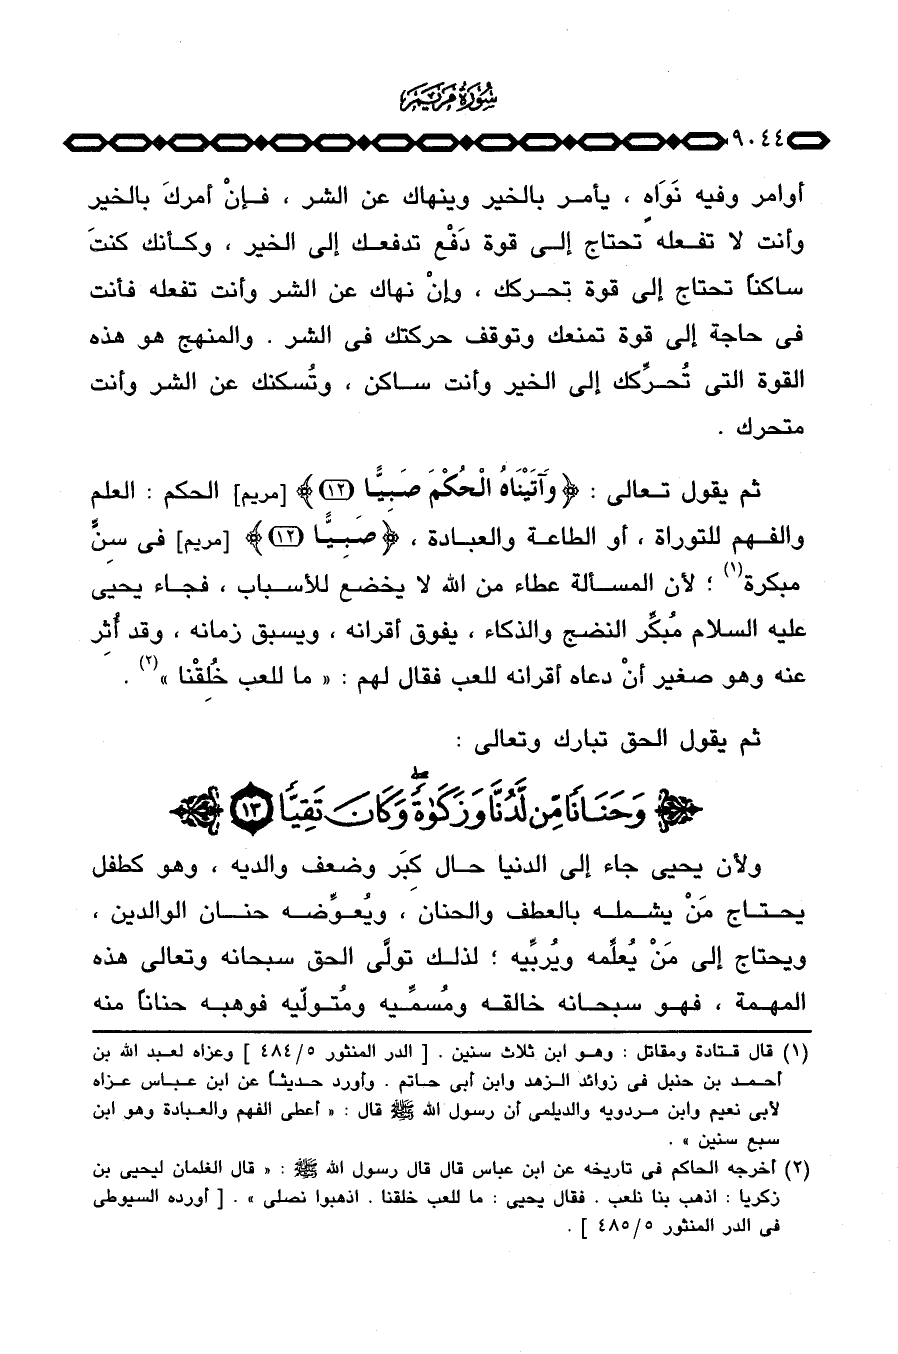 سُورَةُ مَرْيَمَ
٩٠٤٤
أوامر وفيه نَوَاهٍ ، يأمر بالخير وينهاك عن الشر ، فإنْ أمركَ بالخير
وأنت لا تفعله تحتاج إلى قوة دَفْع تدفعك إلى الخير ، وكأنك كنتَ
ساكناً تحتاج إلى قوة تحركك ، وإنْ نهاك عن الشر وأنت تفعله فأنت
فى حاجة إلى قوة تمنعك وتوقف حركتك فى الشر . والمنهج هو هذه
القوة التى تُحرِّكك إلى الخير وأنت ساكن ، وتُسكنك عن الشر وأنت
متحرك .
ثم يقول تعالى : ﴿ وَآتَيْنَاهُ الْحُكْمَ صَبِيًّا (١٢) ﴾ [مريم] الحكم : العلم
والفهم للتوراة ، أو الطاعة والعبادة ، ﴿ صَبِيًّا (١٢) ﴾ [مريم] فى سِنٍّ
مبكرة(١) ؛ لأن المسألة عطاء من الله لا يخضع للأسباب ، فجاء يحيى
عليه السلام مُبكِّر النضج والذكاء ، يفوق أقرانه ، ويسبق زمانه ، وقد أُثِر
عنه وهو صغير أنْ دعاه أقرانه للعب فقال لهم : « ما للعب خُلِقْنا »(٢) .
ثم يقول الحق تبارك وتعالى :
﴿ وَحَنَانًا مِّن لَّدُنَّا وَزَكَوٰةً ۖ وَكَانَ تَقِيًّا ١٣ ﴾
ولأن يحيى جاء إلى الدنيا حال كِبَر وضعف والديه ، وهو كطفل
يحتاج مَنْ يشمله بالعطف والحنان ، ويُعوِّضه حنان الوالدين ،
ويحتاج إلى مَنْ يُعلِّمه ويُربِّيه ؛ لذلك تولَّى الحق سبحانه وتعالى هذه
المهمة ، فهو سبحانه خالقه ومُسمِّيه ومُتولِّيه فوهبه حناناً منه
(١) قال قتادة ومقاتل : وهو ابن ثلاث سنين . [ الدر المنثور ٤٨٤/٥ ] وعزاه لعبد الله بن
أحمد بن حنبل فى زوائد الزهد وابن أبى حاتم . وأورد حديثاً عن ابن عباس عزاه
لأبى نعيم وابن مردويه والديلمى أن رسول الله ﷺ قال : « أعطى الفهم والعبادة وهو ابن
سبع سنين » .
(٢) أخرجه الحاكم فى تاريخه عن ابن عباس قال قال رسول الله ﷺ : « قال الغلمان ليحيى بن
زكريا : اذهب بنا نلعب . فقال يحيى : ما للعب خلقنا . اذهبوا نصلى » . [ أورده السيوطى
فى الدر المنثور ٤٨٥/٥ ] .